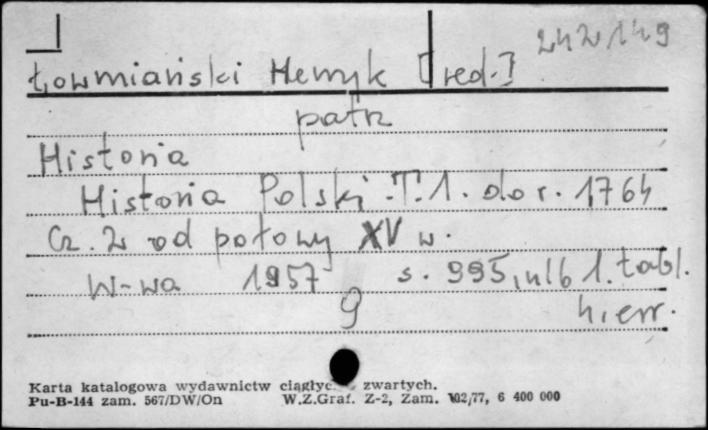 242149
Łowmiański Henryk [red.]
patrz
Historia
Historia Polski. T. 1. do r. 1764
Cz. 2 od połowy XV w.
W-wa 1957 s. 995, nlb 1. tabl.
9
Karta katalogowa wydawnictw zwartych.
Pu-B-144 zam. 567/DW/On W.Z.Graf. Z-2, Zam. 102/77, 6 400 000